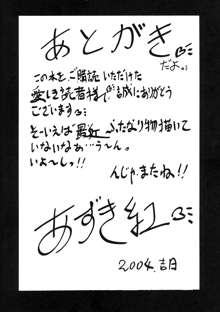 あとがき
だよ。
この本を、ご購読いただけた
愛しき読者様、誠にありがとう
ございます
そーいえば最近 ふたなり物描いて
いないなあ…う〜ん。
いよ〜しっ!!
んじゃ、またね!!
あずき紅
2004. 吉日